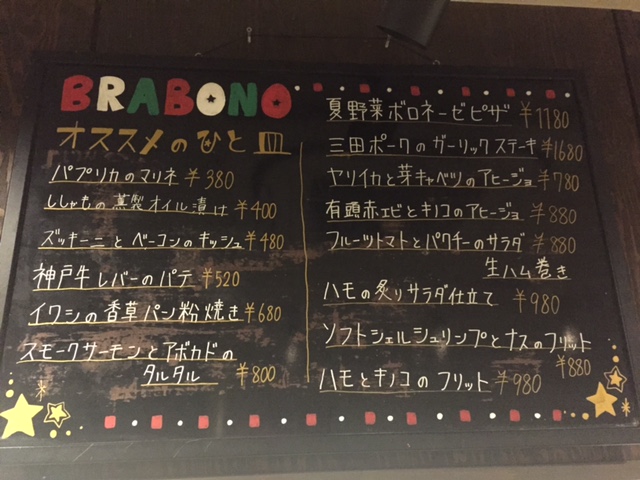 BRABONO
オススメのひと皿
パプリカのマリネ ¥380
ししゃもの薫製オイル漬け ¥400
ズッキーニとベーコンのキッシュ ¥480
神戸牛レバーのパテ ¥520
イワシの香草パン粉焼き ¥680
スモークサーモンとアボカドの
タルタル ¥800
夏野菜ボロネーゼピザ ¥1180
三田ポークのガーリックステーキ ¥1680
ヤリイカと芽キャベツのアヒージョ ¥780
有頭赤エビとキノコのアヒージョ ¥880
フルーツトマトとパクチーのサラダ ¥880
生ハム巻き
ハモの炙りサラダ仕立て ¥980
ソフトシェルシュリンプとナスのフリット
¥880
ハモとキノコのフリット ¥980